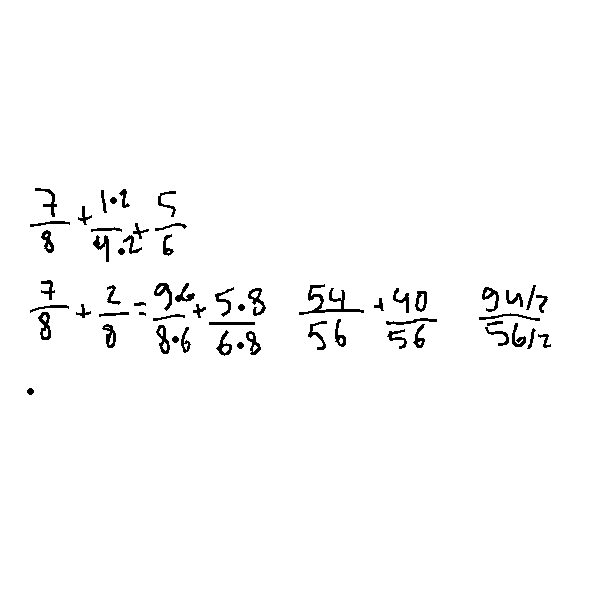 7/8 + 1·2/4·2 + 5/6
7/8 + 2/8 = 9·6/8·6 + 5·8/6·8 54/56 + 40/56 94/2/56/2